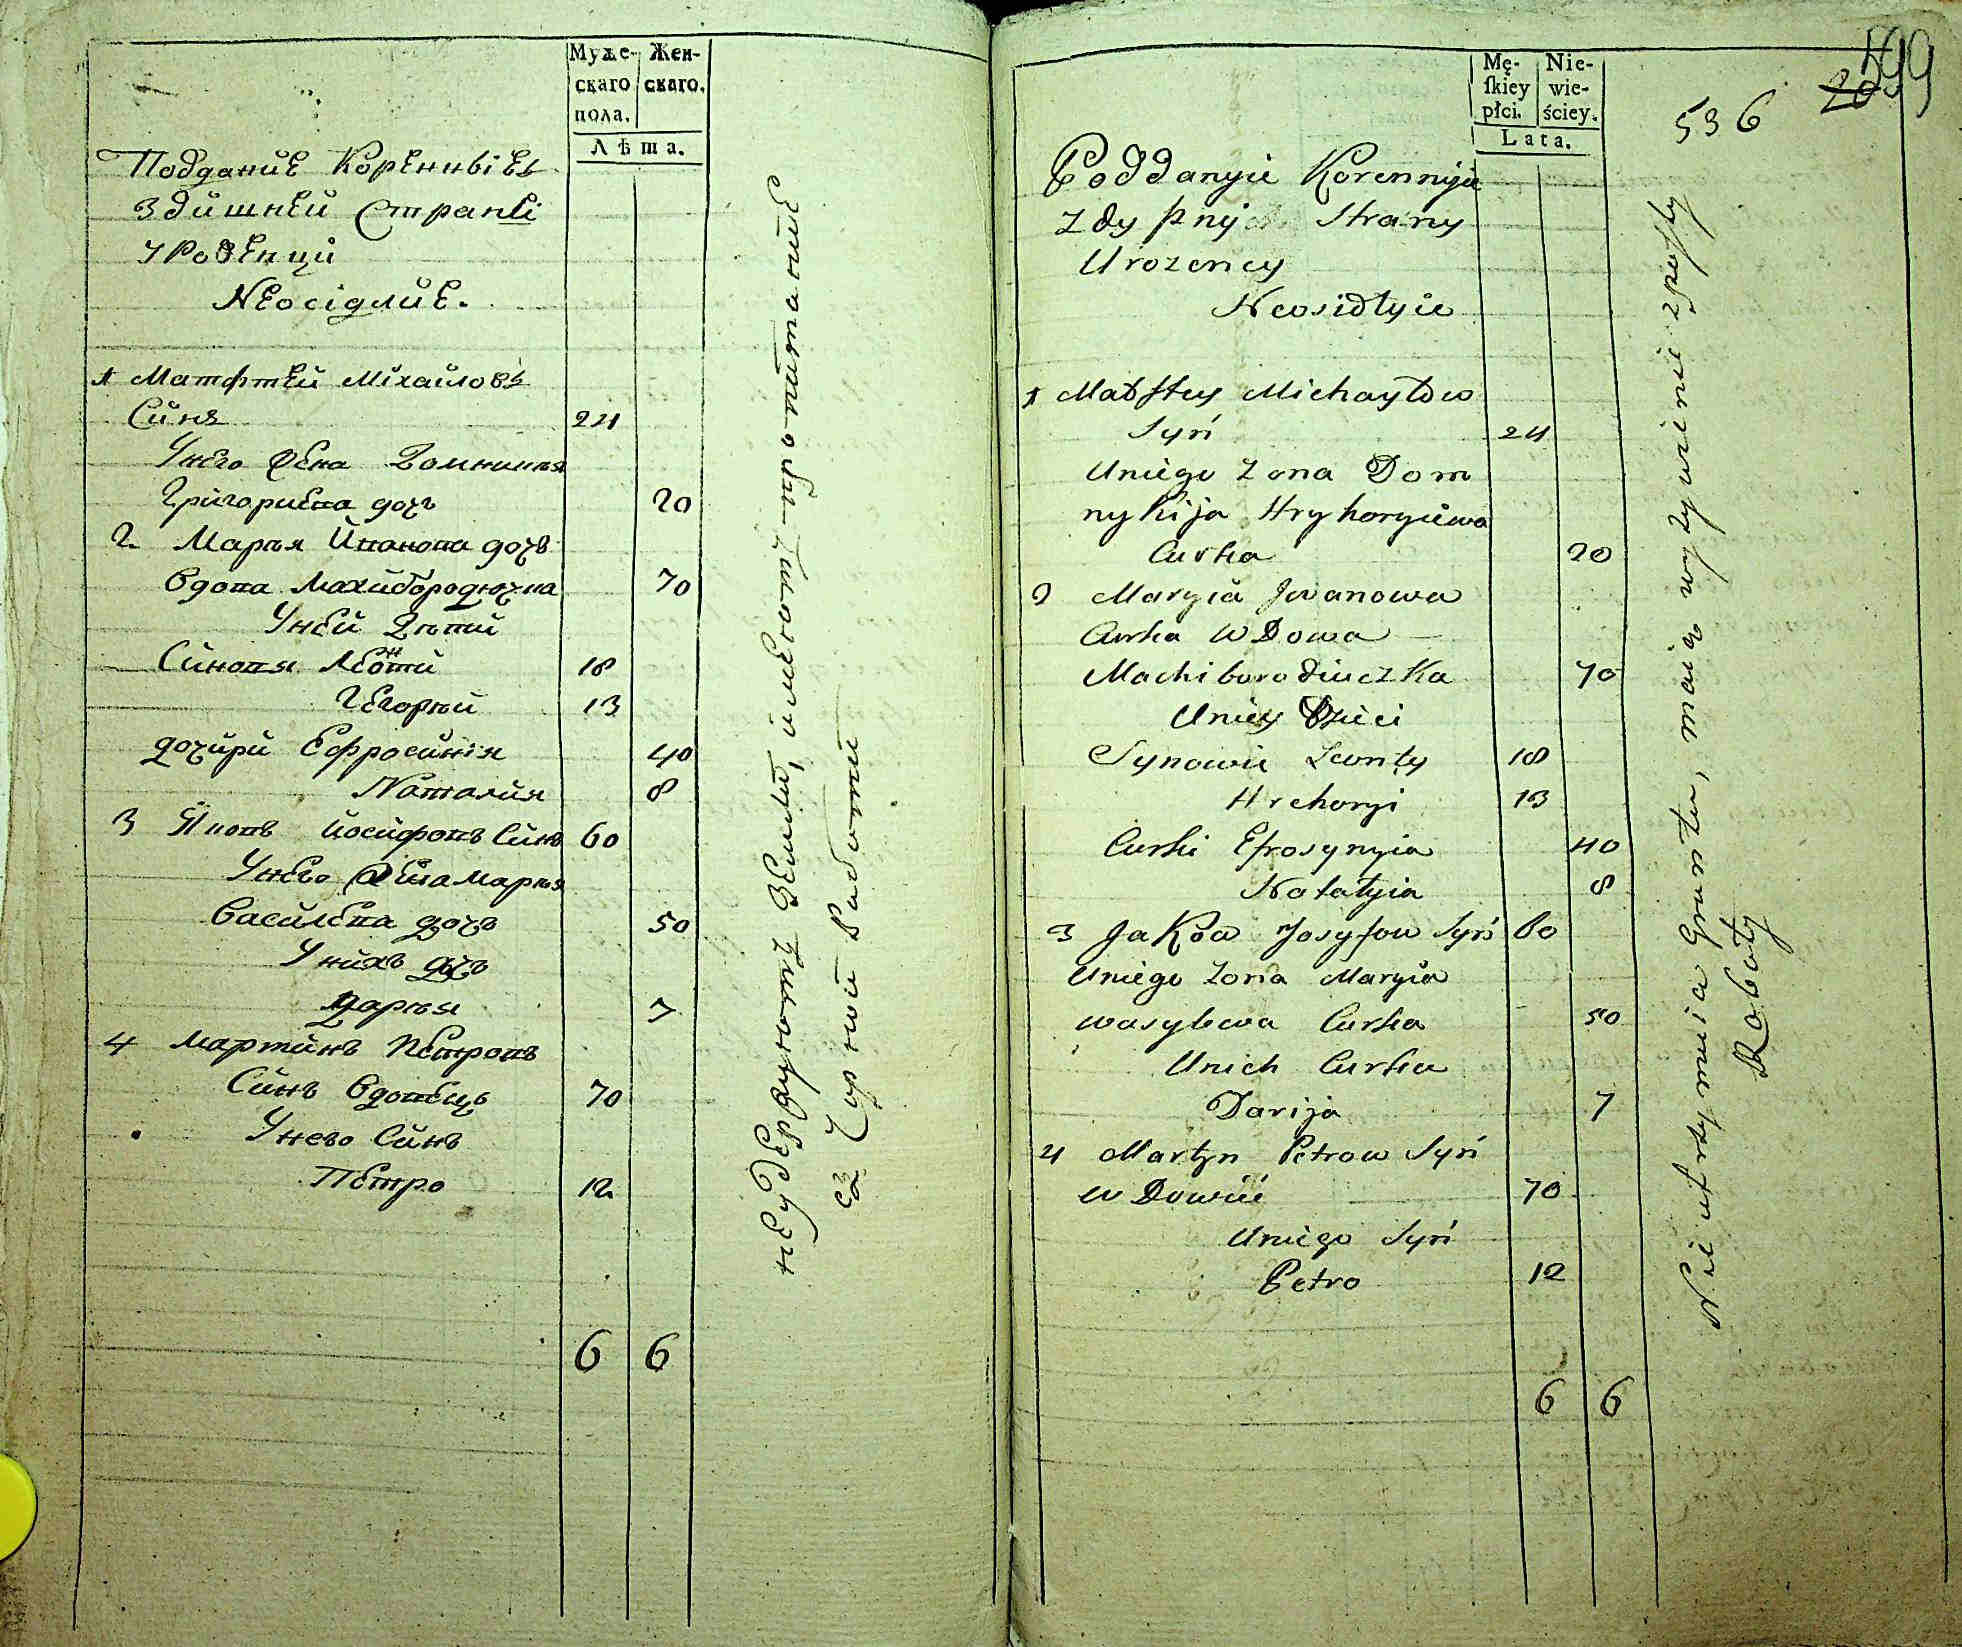 Муже- Жен-
скаго скаго.
пола.
Лѣта.
Подданиѣ Коренныіеъ
Здишней Страны
Уроженци
Неосідлиѣ.
1 Матфтей Міхайловъ
Синъ 24
Унего Жена Домникия
Григориева дочъ 20
2 Марья Иванова дочъ
Вдова Махибородючка 70
Уней Дѣтий
Синовя Леонтий 18
Гегорый 13
дочири Ефросинія 40
Наталия 8
3 Яковъ Иосифовъ Синъ 60
Унего Жена Маръя
Василева дочъ 50
Унихъ дочъ
Даръя 7
4 Мартинъ Петровъ
Синъ Вдовецъ 70
Унего Синъ
Петро 12
6 6
неудержуютъ Земли, имеютъ пропитание
Чорной Работи
Mę- Nie-
skiey wie-
płci. ściey.
Lata.
599
536
Poddanyie Korennyie
Zdyszny Strany
Urozency
Neosidłyie
1 Matftey Michayłow
Syn 24
Uniego Zona Dom
nykija Hryhoryiewa
Curka 20
2 Maryia Jwanowa
Curka Wdowa
Machiborodiuczka 70
Uniey Dzieci
Synowie Lewnty 18
Hrehoryi 13
Curki Efrosynyia 40
Natałyia 8
3 Jakow Josyfow Syn 60
Uniego Zona Maryia
Wasylewa Curka 50
Unich Curka
Darija 7
4 Martyn Petrow Syn
Wdowiec 70
Uniego Syn
Petro 12
6 6
Nie utrzymuia Gruntu, maią wyzywienie z posty
Roboty